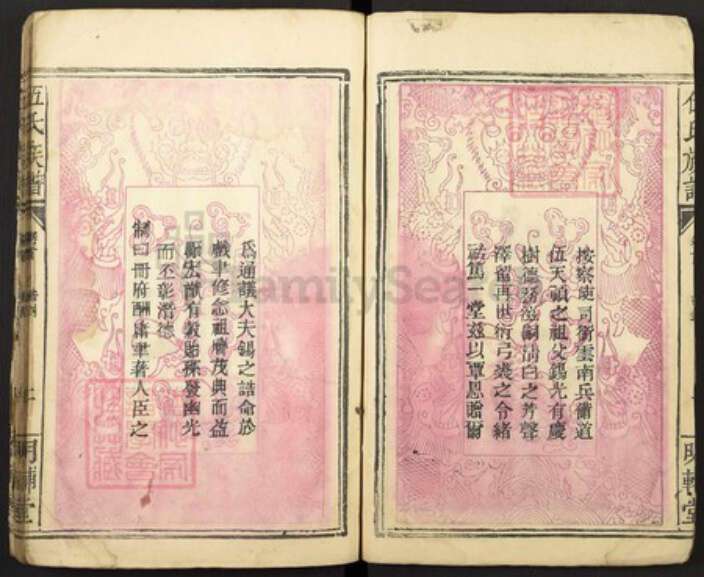 伍氏族譜
按察使司銜雲南兵備道
伍天
之祖父錫光有慶
樹德務滋嗣清白之芳聲
澤留再世衍弓裘之令緒
祜篤一堂兹以覃恩贈爾
爲通議大夫錫之誥命於
戲聿修念祖膺茂典而益
勵宏猷有榖貽孫發幽光
而丕彰潛德
制曰冊府酬庸聿著人臣之
伍氏族譜
FamilySearch